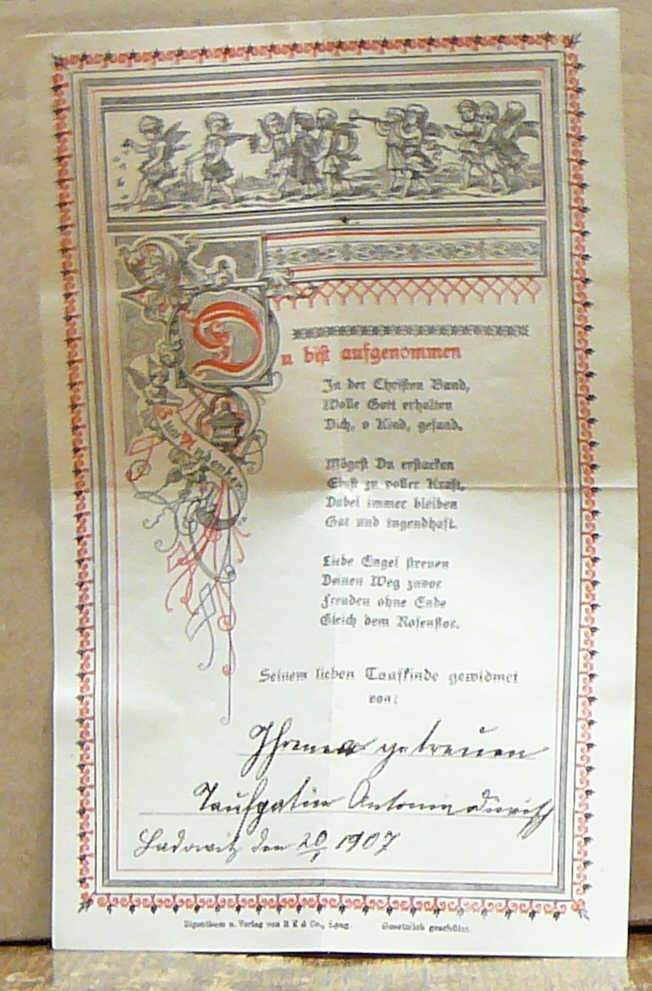 Du bist aufgenommen
In der Christen Band,
Wolle Gott erhalten
Dich, o Kind, gesund.
Mögest Du erstarken
Einst zu voller Kraft,
Dabei immer bleiben
Gut und tugendhaft.
Liebe Engel streuen
Deinen Weg zuvor
Freuden ohne Ende
Gleich dem Rosenflor.
Zum Andenken
Seinem lieben Taufkinde gewidmet
von:
Ihrer getreuen
Taufpatin Antonie
Ladowitz den 20/ 1907
Eigenthum u. Verlag von & Co.,
Gesetzlich geschützt.